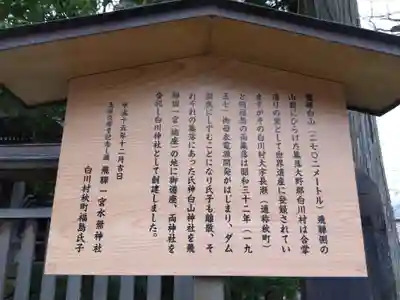 霊峰白山(二七〇二メートル)飛騨側の
山麓にひらけた集落大野郡白川村は合掌
造りの里として世界遺産に登録されてい
ますがその白川村大字長瀬(通称秋町)
と福島の両集落は昭和三十二年(一九
五七)御母衣電源開発がはじまり、ダム
湖底にしずむことになり氏子も離散、そ
れぞれの集落にあった氏神白山神社を飛
騨国一宮(鎮座)の地に御遷座、両神社を
合祀し白川神社として創建しました。
平成十五年十二月吉日
飛騨一宮水無神社
白川村秋町福島氏子